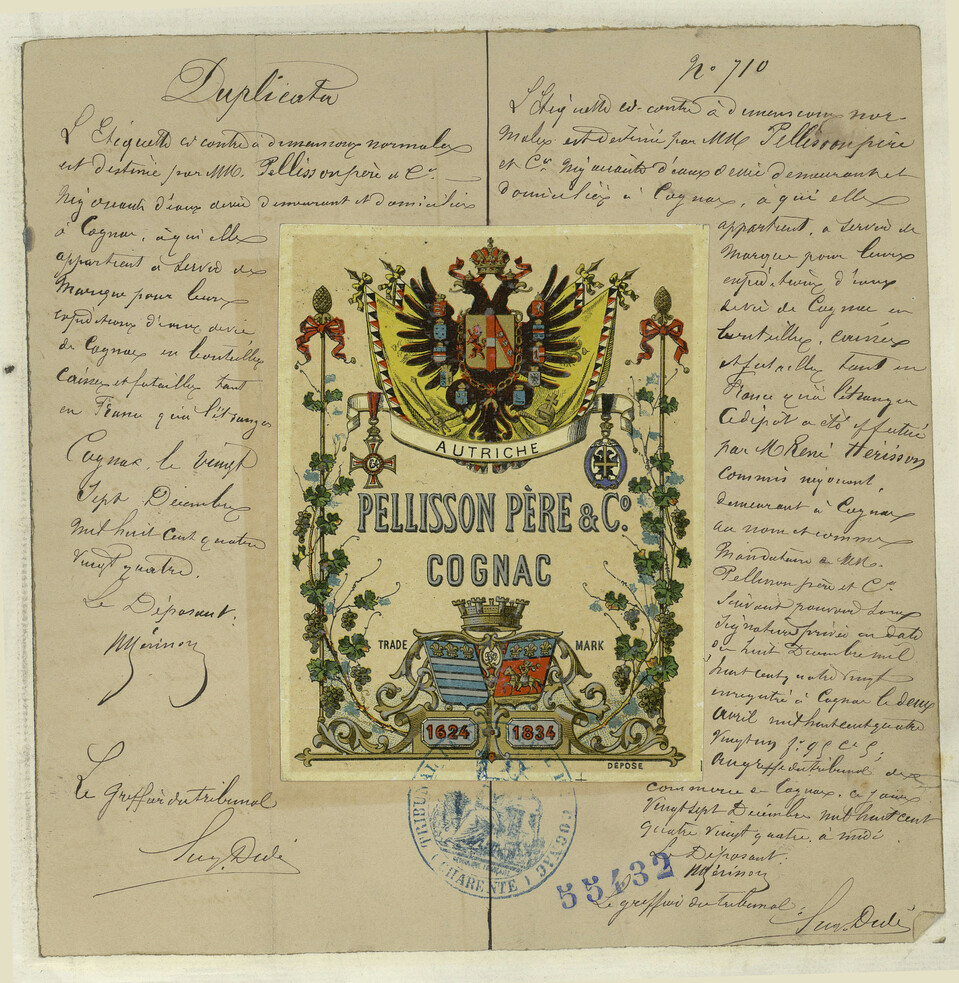 Duplicata
L'Etiquette ci-contre à dimensions normales
est destinée par MM. Pellisson père & Cie
Négociants d'eaux devie demeurant et domiciliés
à Cognac, à qui elle
appartient à servir de
Marque pour leurs
expéditions d'eaux devie
de Cognac en bouteilles
caisses et futailles tant
en France qu'à l'étranger
Cognac, le vingt
Sept Décembre
mil huit cent quatre
vingt quatre.
Le Déposant:
RHérisson
Le greffier du tribunal
AUTRICHE
PELLISSON PÈRE & Cº
COGNAC
TRADE MARK
1624 1834
DÉPOSÉ
TRIBUNAL DE COGNAC
RÉPUBLIQUE FRANÇAISE
(CHARENTE)
Nº 710
L'Etiquette ci-contre à dimensions nor
males est destinée par MM Pellisson père
et Cie Négociants d'eaux devie demeurant et
domiciliés à Cognac, à qui elle
appartient, à servir de
Marque pour leurs
expéditions d'eaux
devie de Cognac en
bouteilles, caisses
et futailles tant en
France qu'à l'étranger
Ce dépôt a été effectué
par M René Hérisson
commis négociant,
demeurant à Cognac
au nom et comme
Mandataire de MM.
Pellisson père et Cie
Suivant pouvoir sous
signature privée en date
du huit Décembre mil
huit cent quatre vingt
enregistré à Cognac le deux
avril mil huit cent quatre
vingt un
au greffe du tribunal de
commerce de Cognac, ce jour
vingt sept Décembre mil huit cent
quatre vingt quatre, à midi
Le Déposant:
RHérisson
55432
Le greffier du tribunal: